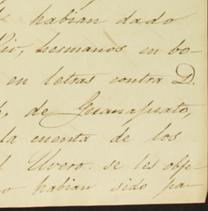 habian dado
Rio, hermanos en bo-
en letras contra D.
, de Guanajuato,
la cuenta de los
l Olvera. se les obje-
o habian sido pa-